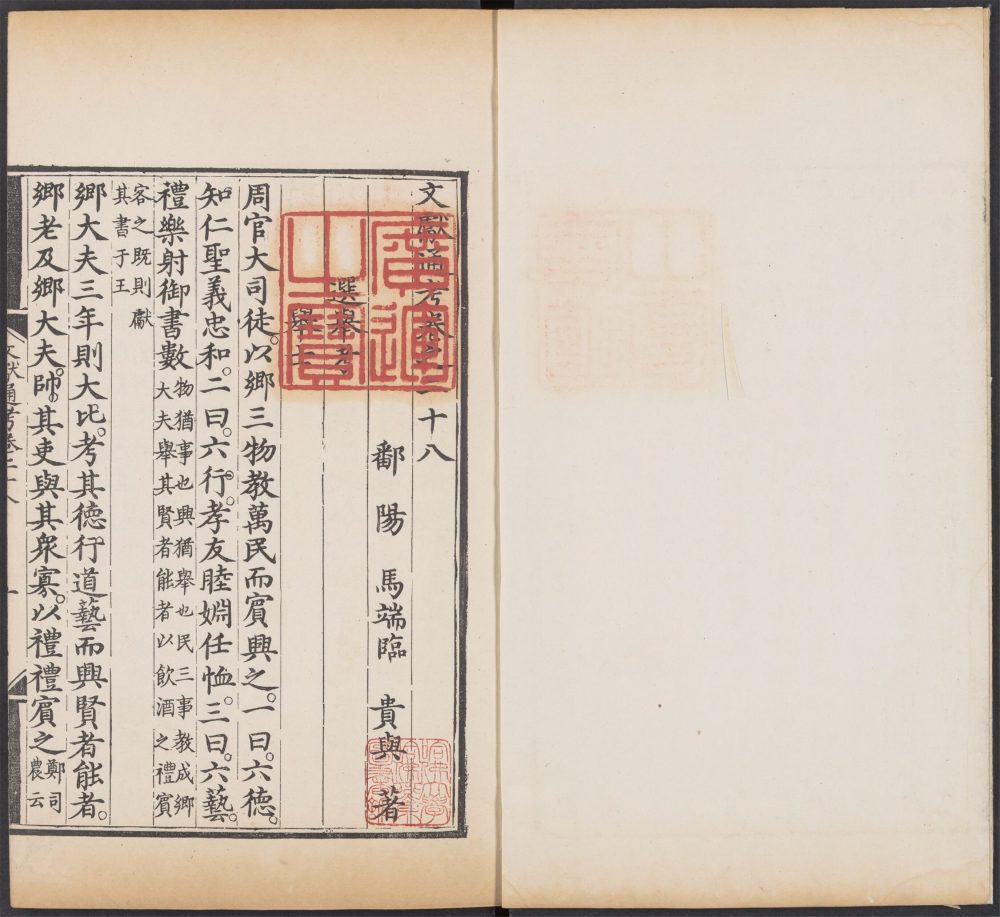 文獻通考卷之二十八
鄱陽馬端臨貴與著
選舉考
舉士
周官大司徒。以鄉三物教萬民而賓興之。一曰。六德。
知仁聖義忠和。二曰。六行。孝友睦婣任恤。三曰。六藝。
禮樂射御書數
物猶事也興猶舉也民三事教成鄉
大夫舉其賢者能者以飲酒之禮賓
客之既則獻
其書于王
鄉大夫三年則大比。考其德行道藝而興賢者能者。
鄉老及鄉大夫。帥其吏與其眾寡。以禮禮賓之
鄭司
農云
文獻通考卷二十八
一
廣運
之寶